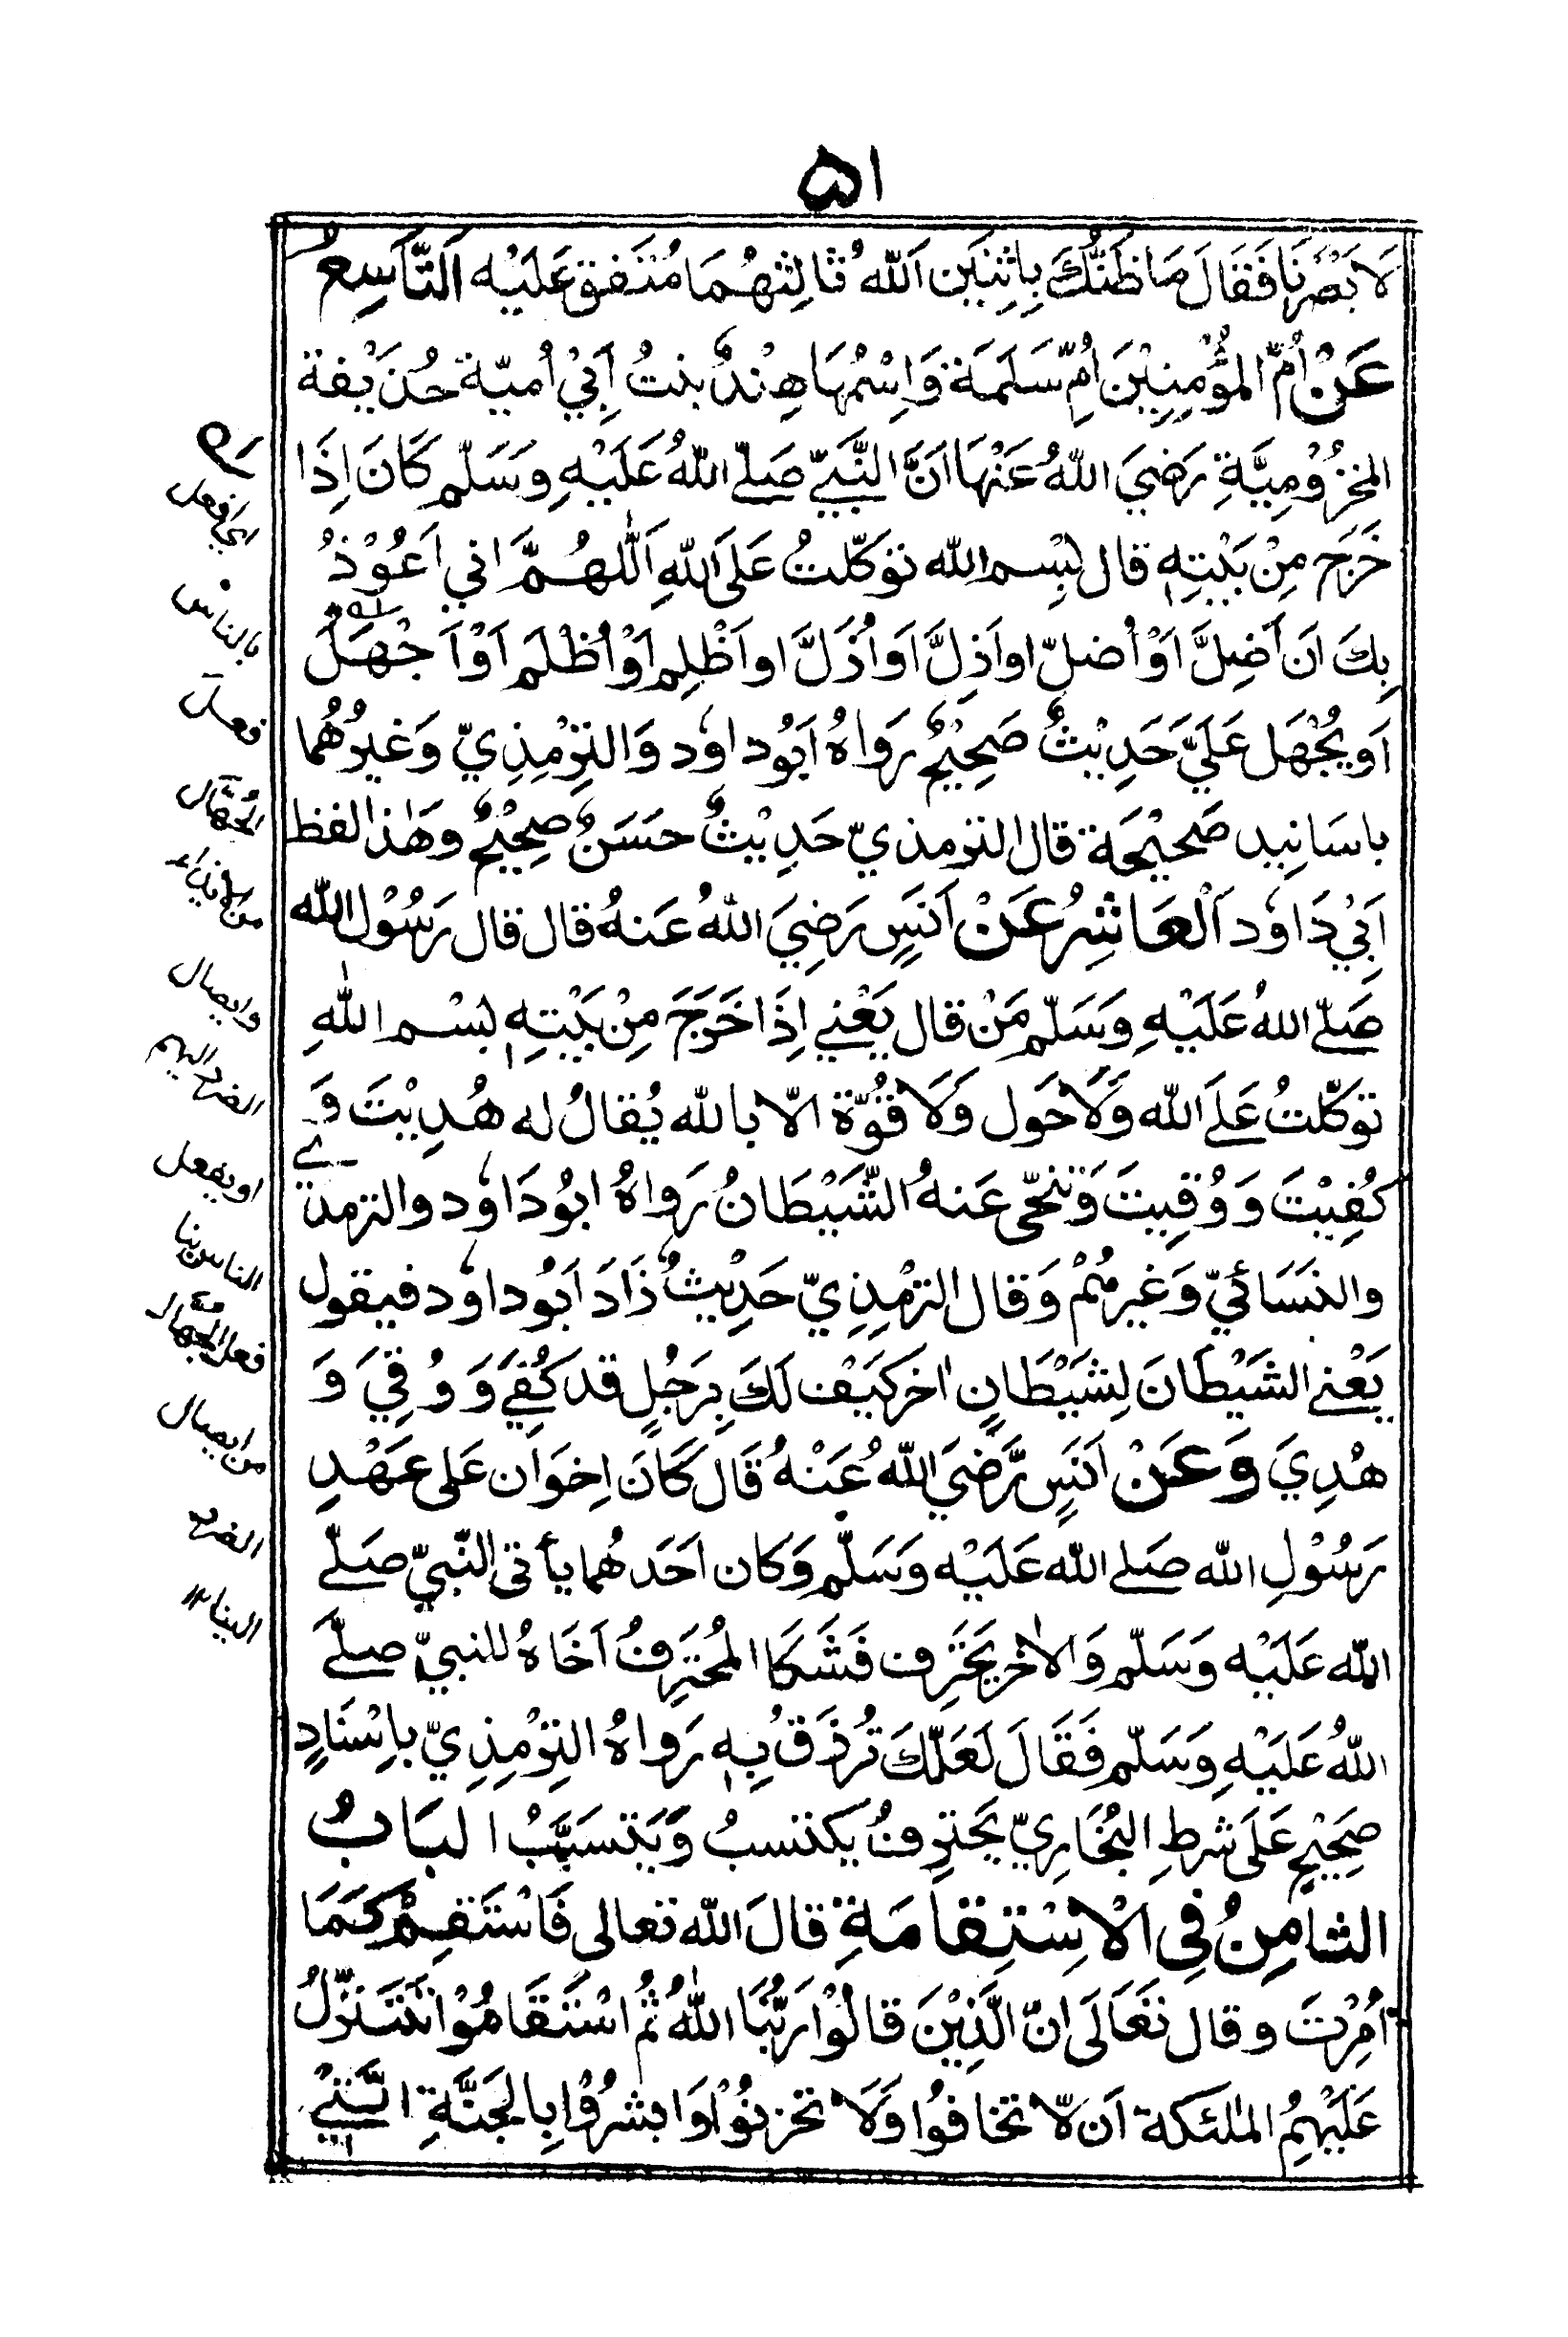 ۵۱
لَابْصَرَنَا فَقَالَ مَا ظَنُّكَ بِاثْنَيْنِ اَللّٰهُ ثَالِثُهُمَا مُتَّفَقٌ عَلَيْهِ اَلتَّاسِعُ
عَنْ اُمِّ الْمُؤْمِنِيْنَ اُمِّ سَلَمَةَ وَاِسْمُهَا هِنْدٌ بِنْتُ اَبِيْ اُمَيّة حُذَيْفة
المَخْزُوْمِيَّةِ رَضِيَ اللهُ عَنْهَا اَنَّ النَّبِيَّ صَلَّى اللهُ عَلَيْهِ وَسَلَّم كَانَ اِذَا
خَرَجَ مِنْ بَيْتِهٖ قال بِسْمِ الله توَكّلتُ عَلَى اللهِ اَللّٰهُمَّ اني اَعُوْذُ
بِكَ ان اَضِلَّ اَوْ اُضلّ او اَذِلَّ اَوْ اُذَلَّ او اَظْلِم اَوْ اُظْلَمَ اَوْ اَجْهَلَ
اَو يُجْهَل عَلَيَّ حَدِيْثٌ صَحِيْحٌ رَوَاهُ اَبُوداوٗد وَالتِرْمِذِيّ وَغَيْرُهُما
باسَانِيد صَحِيْحَة قال الترمذيّ حَدِيْثٌ حَسَنٌ صَحِيْحٌ وهٰذا لفظ
اَبِيْ دَاوٗد اَلْعَاشِرُ عَنْ اَنَسٍ رَضِيَ اللهُ عَنهُ قال قال رَسُوْل الله
صَلّى اللهُ عَلَيْهِ وَسَلّم مَنْ قال يَعْنِي اِذَا خَرَجَ مِنْ بَيْتِهٖ بسْم اللهِ
توَكّلتُ عَلَى الله وَلَا حَول وَلَا قُوّة الّا بالله يُقالُ له هُدِيْتَ وَ
كُفِيْتَ وَوُقِيتَ وَتَنَحّى عَنهُ الشَّيْطَانُ رَوَاهُ ابُودَاوٗد والترمذي
والنسَائيّ وَغَيرهُمْ وَقال الترْمِذِيّ حَدِيْثٌ زَادَ اَبُوداوٗد فيقول
يَعْنِي الشَيْطَانَ لِشَيْطَانٍ اٰخر كَيَف لَكَ بِرَجُلٍ قد كُفِيَ وَوُقِيَ وَ
هُدِيَ وَعَنْ اَنَسٍ رَّضِيَ اللهُ عَنْهُ قَال كَانَ اِخوَان عَلى عَهْدِ
رَسُوْلِ الله صَلى الله عَلَيْه وَسَلّم وَكان اَحَدهُما يأتى النّبيّ صَلّى
اللّه عَلَيْه وَسَلّم وَالاٰخر يَحْتَرِف فَشَكَا المُحْتَرِفُ اَخَاهُ للنبيّ صلّى
اللهُ عَلَيْهِ وَسَلّم فَقَالَ لَعَلّكَ تُرْزَقُ بِهٖ رَوَاهُ التِرْمِذِيّ بِاِسْنَادٍ
صَحِيْحٍ عَلَى شرطِ البُخَارِيّ يَحْتَرِفُ يكتسبُ وَيَتَسَبَّبُ البَابُ
الثامِنُ فِي الْاِسْتِقَامَةِ قالَ الله تعالى فَاسْتَقِمْ كَمَا
اُمِرْتَ وقال تعَالَى اِنّ الَّذِيْنَ قالُوْا رَبُّنَا اللهُ ثُم اسْتَقَامُوْا تَتَنَزّلُ
عَلَيْهِمُ المٰلٰئكة اَن لّا تخافُوا وَلَا تحزنُوْا وَابشرُوْا بِالجَنَّةِ الَّتِيْ
اي افعل
بالناس
فعل
الجهال
وايصال
الضرر اليهم
او يفعل
الناس بنا
فعل الجهال
من ايصال
الضرر
الينا ١٢